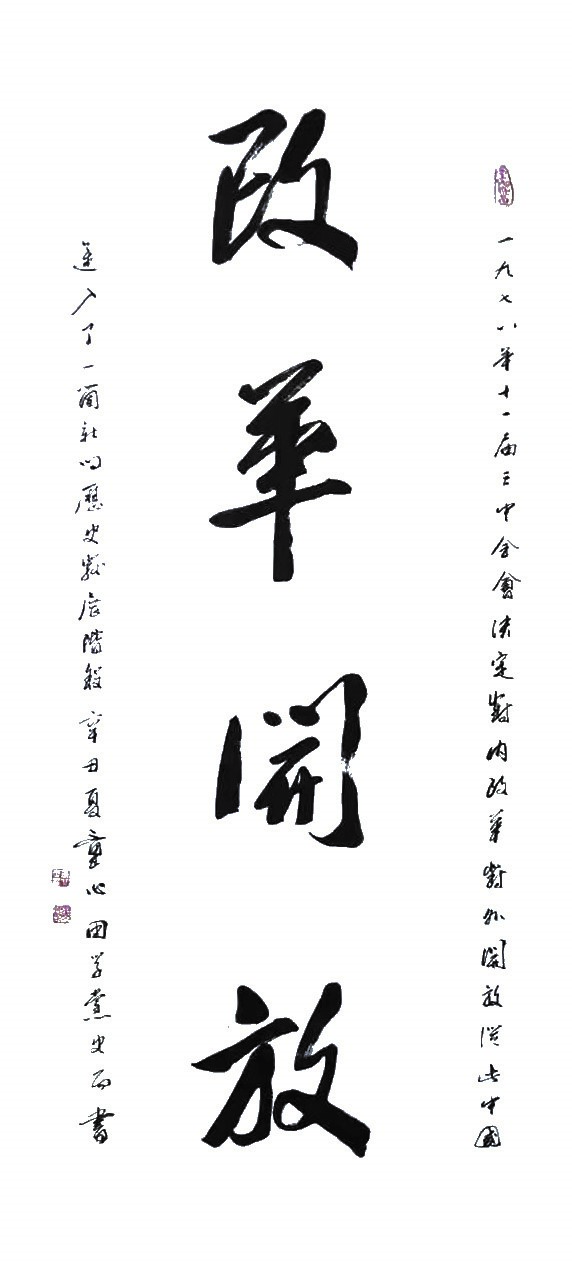 改革開放
一九七八年十一届三中全會決定對内改革對外開放從此中國
進入了一箇新的歷史發展階段辛丑夏童心田学黨史而書